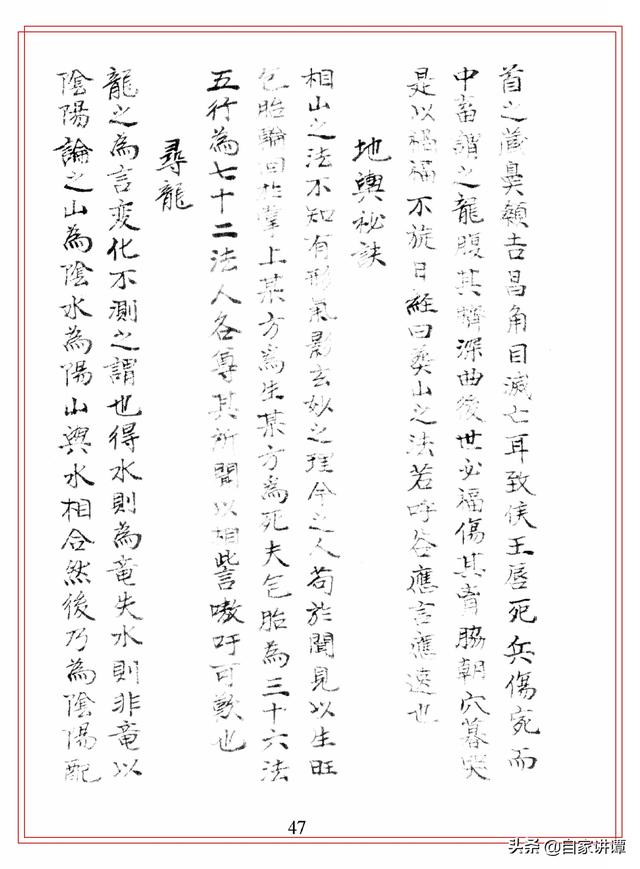 首之藏鼻顙吉昌角目滅亡耳致侯王唇死兵傷宛而
中畜謂之龍腹其臍深曲後世必福傷其胷脇朝穴暮哭
是以禍福不旋日經曰葬山之法若呼谷應言應速也
地輿秘訣
相山之法不知有形氣影玄妙之理今之人苟於聞見以生旺
胞胎輪回於掌上某方為生某方為死夫胞胎為三十六法
五行為七十二法人各尊其所聞以相訾嗷吁可歎也
尋龍
龍之為言変化不測之謂也得水則為竜失水則非竜以
陰陽論之山為陰水為陽山與水相合然後乃為陰陽配
47
头条 @自家讲谭